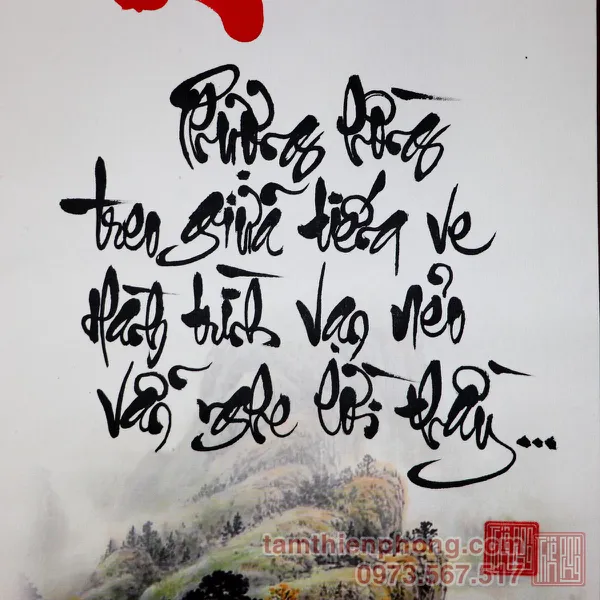 Phượng hồng
treo giữa tiếng ve
Hành trình vạn nẻo
vẫn nghe lời thầy...
tamthienphong.com
0973.567.517